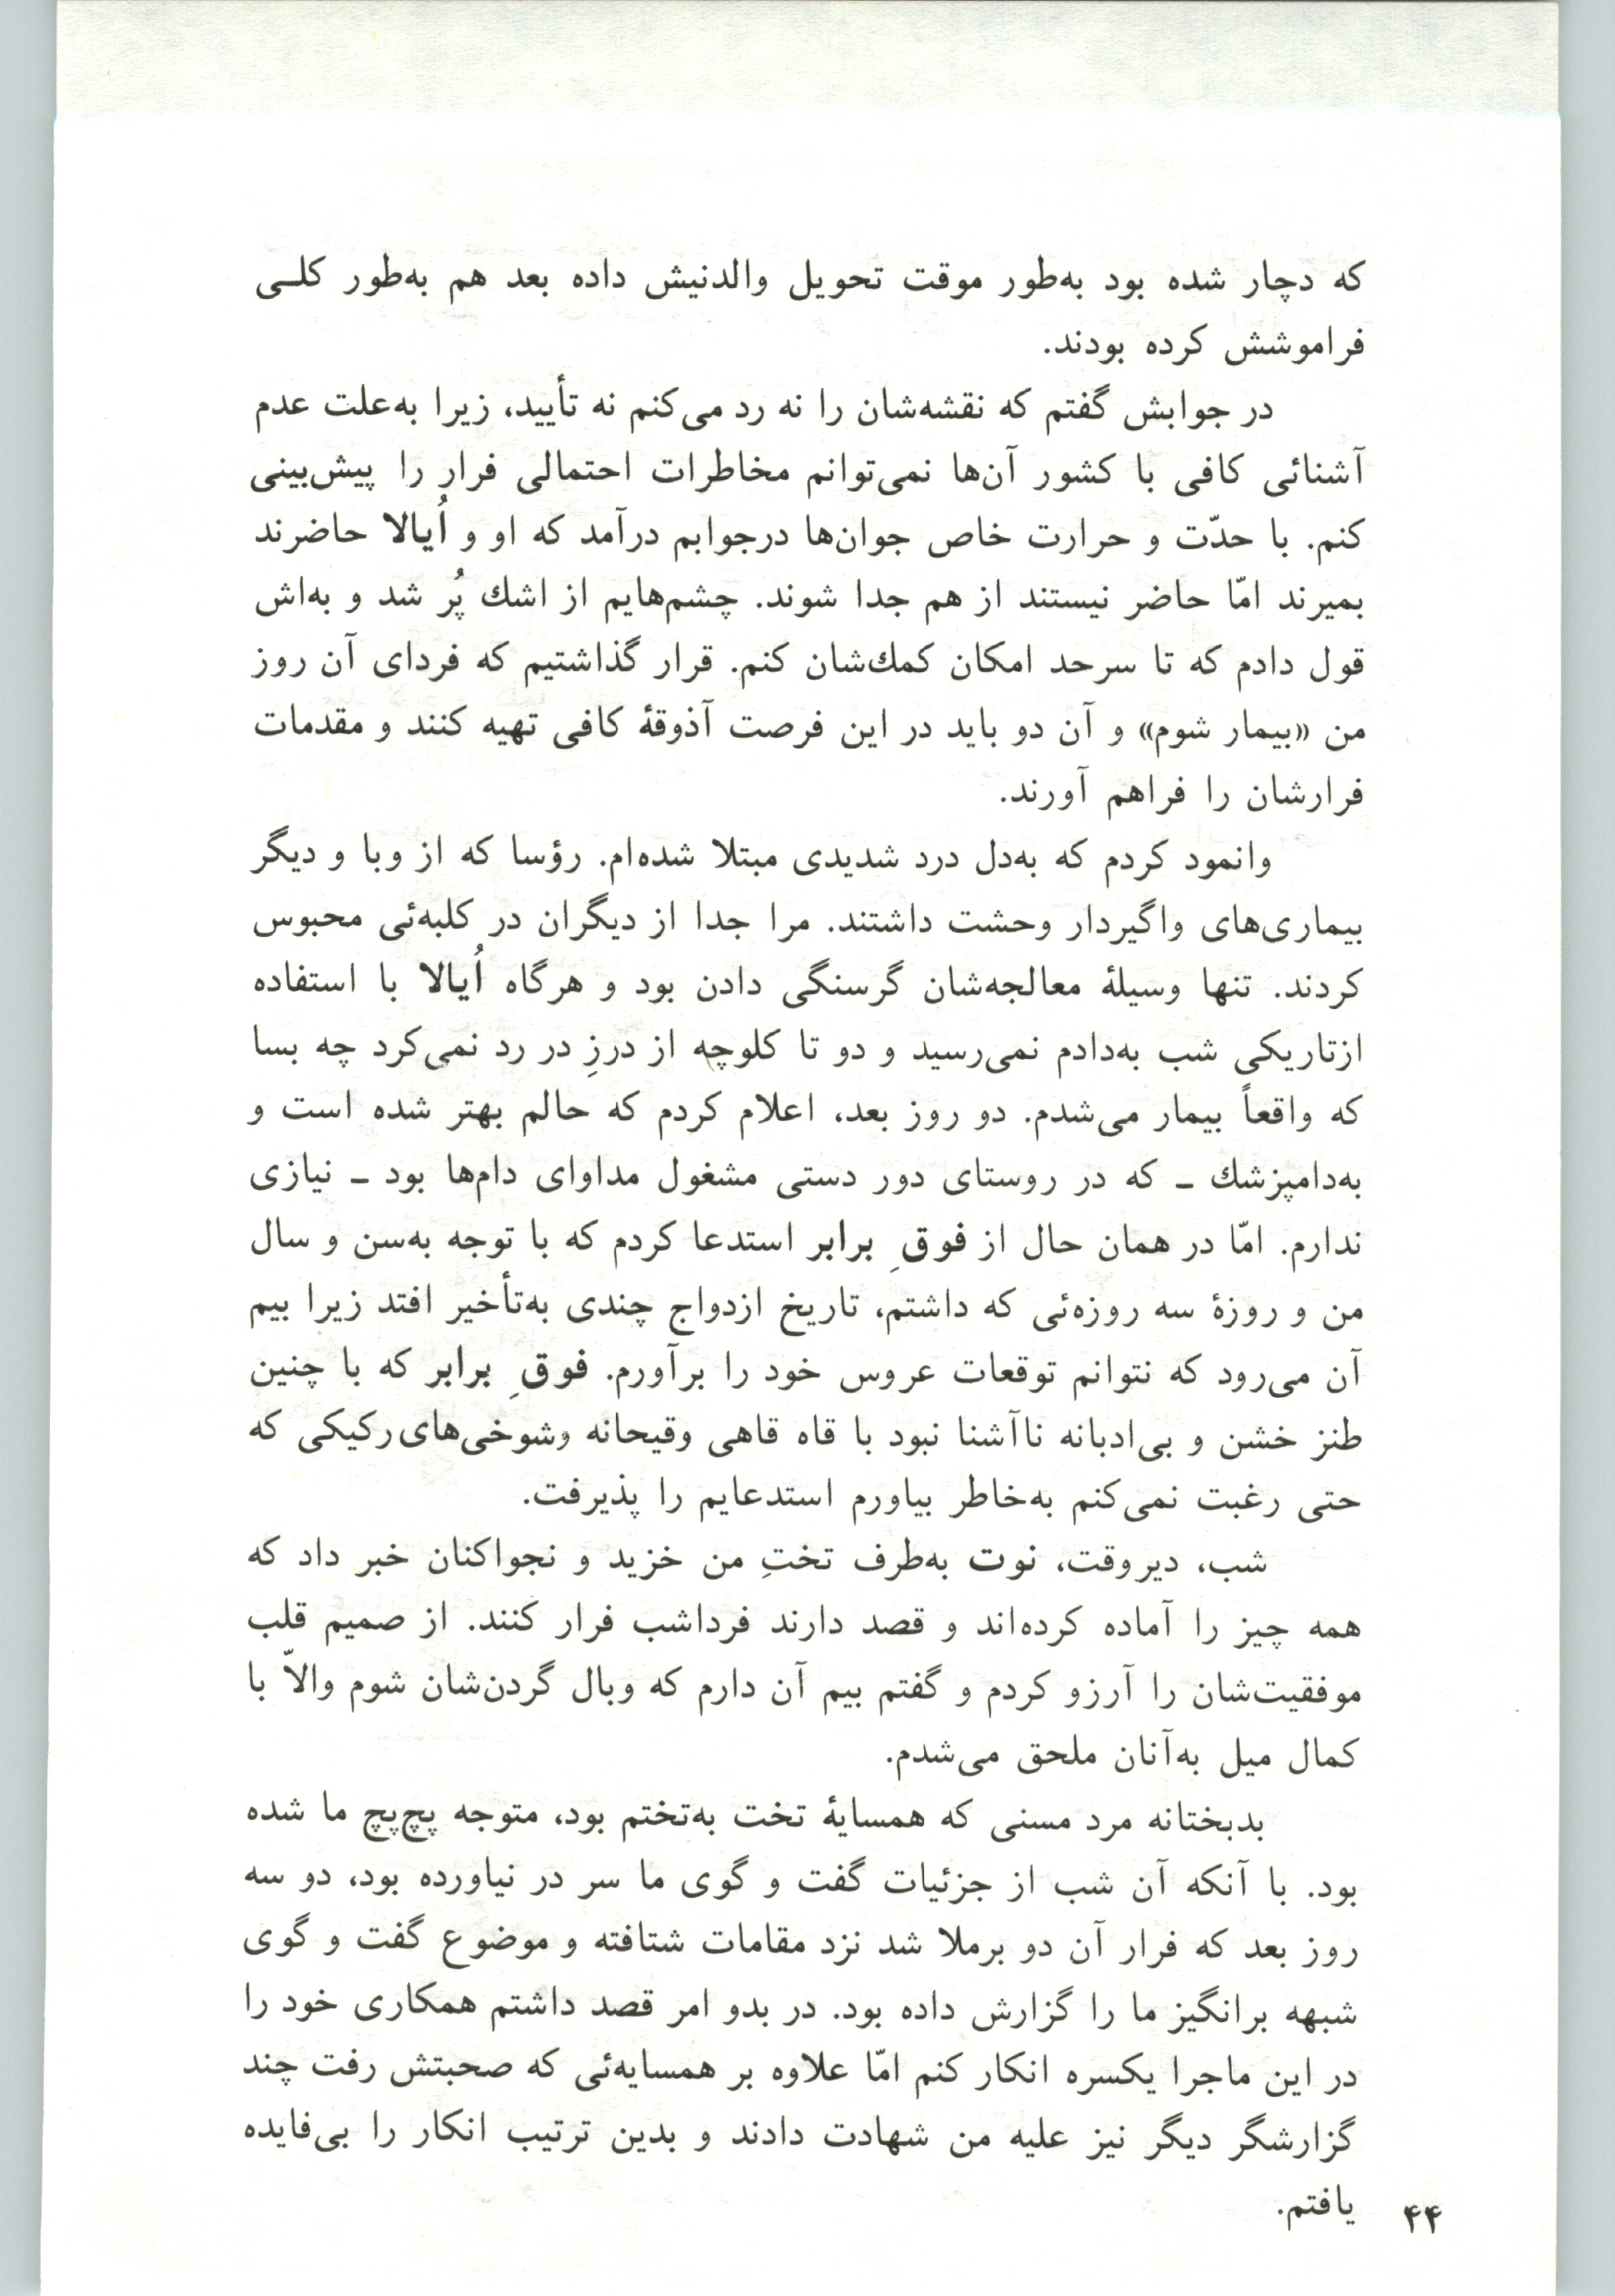 که دچار شده بود به‌طور موقت تحویل والدنیش داده بعد هم به‌طور کلــی
فراموشش کرده بودند.
در جوابش گفتم که نقشه‌شان را نه رد می‌کنم نه تأیید، زیرا به‌علت عدم
آشنائی کافی با کشور آن‌ها نمی‌توانم مخاطرات احتمالی فرار را پیش‌بینی
کنم. با حدّت و حرارت خاص جوان‌ها درجوابم درآمد که او و اُیالا حاضرند
بمیرند امّا حاضر نیستند از هم جدا شوند. چشم‌هایم از اشك پُر شد و به‌اش
قول دادم که تا سرحد امکان کمك‌شان کنم. قرار گذاشتیم که فردای آن روز
من «بیمار شوم» و آن دو باید در این فرصت آذوقهٔ کافی تهیه کنند و مقدمات
فرارشان را فراهم آورند.
وانمود کردم که به‌دل درد شدیدی مبتلا شده‌ام. رؤسا که از وبا و دیگر
بیماری‌های واگیردار وحشت داشتند. مرا جدا از دیگران در کلبه‌ئی محبوس
کردند. تنها وسیلهٔ معالجه‌شان گرسنگی دادن بود و هرگاه اُیالا با استفاده
ازتاریکی شب به‌دادم نمی‌رسید و دو تا کلوچه از درزِ در رد نمی‌کرد چه بسا
که واقعاً بیمار می‌شدم. دو روز بعد، اعلام کردم که حالم بهتر شده است و
به‌دامپزشك ـ که در روستای دور دستی مشغول مداوای دام‌ها بود ـ نیازی
ندارم. امّا در همان حال از فوقِ برابر استدعا کردم که با توجه به‌سن و سال
من و روزهٔ سه روزه‌ئی که داشتم، تاریخ ازدواج چندی به‌تأخیر افتد زیرا بیم
آن می‌رود که نتوانم توقعات عروس خود را برآورم. فوقِ برابر که با چنین
طنز خشن و بی‌ادبانه ناآشنا نبود با قاه قاهی وقیحانه وشوخی‌های رکیکی که
حتی رغبت نمی‌کنم به‌خاطر بیاورم استدعایم را پذیرفت.
شب، دیروقت، نوت به‌طرف تختِ من خزید و نجواکنان خبر داد که
همه چیز را آماده کرده‌اند و قصد دارند فرداشب فرار کنند. از صمیم قلب
موفقیت‌شان را آرزو کردم و گفتم بیم آن دارم که وبال گردن‌شان شوم والاّ با
کمال میل به‌آنان ملحق می‌شدم.
بدبختانه مرد مسنی که همسایهٔ تخت به‌تختم بود، متوجه پچ‌پچ ما شده
بود. با آنکه آن شب از جزئیات گفت و گوی ما سر در نیاورده بود، دو سه
روز بعد که فرار آن دو برملا شد نزد مقامات شتافته و موضوع گفت و گوی
شبهه برانگیز ما را گزارش داده بود. در بدو امر قصد داشتم همکاری خود را
در این ماجرا یکسره انکار کنم امّا علاوه بر همسایه‌ئی که صحبتش رفت چند
گزارشگر دیگر نیز علیه من شهادت دادند و بدین ترتیب انکار را بی‌فایده
یافتم.
۴۴